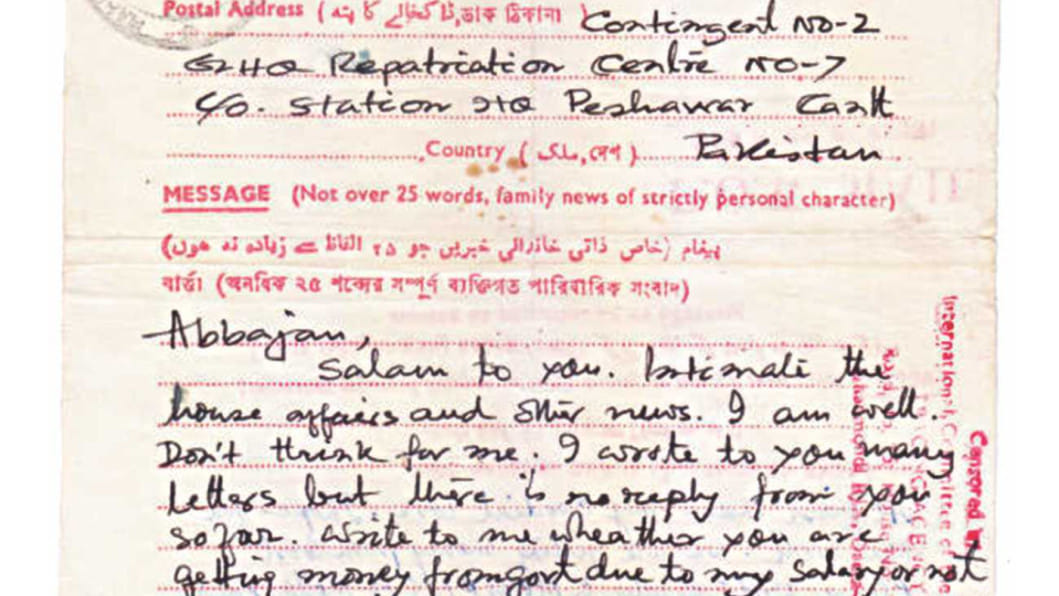 Postal Address (ڈاکخانے کا پتہ, ডাক ঠিকানা) Contingent NO-2
GHQ Repatriation Centre NO-7
C/o. Station HQ Peshawar Cantt
Country (ملک, দেশ) Pakistan
MESSAGE (Not over 25 words, family news of strictly personal character)
پیغام (خاص ذاتی خاندانی خبریں جو ۲۵ الفاظ سے زیادہ نہ ہوں)
বার্তা (অনধিক ২৫ শব্দের সম্পূর্ণ ব্যক্তিগত পারিবারিক সংবাদ)
Abbajan,
Salam to you. Intimate the
house affairs and other news. I am well.
Don't think for me. I wrote to you many
letters but there is no reply from you
so far. Write to me wheather you are
getting money from govt due to my salary or not
International Committee of the
Censored